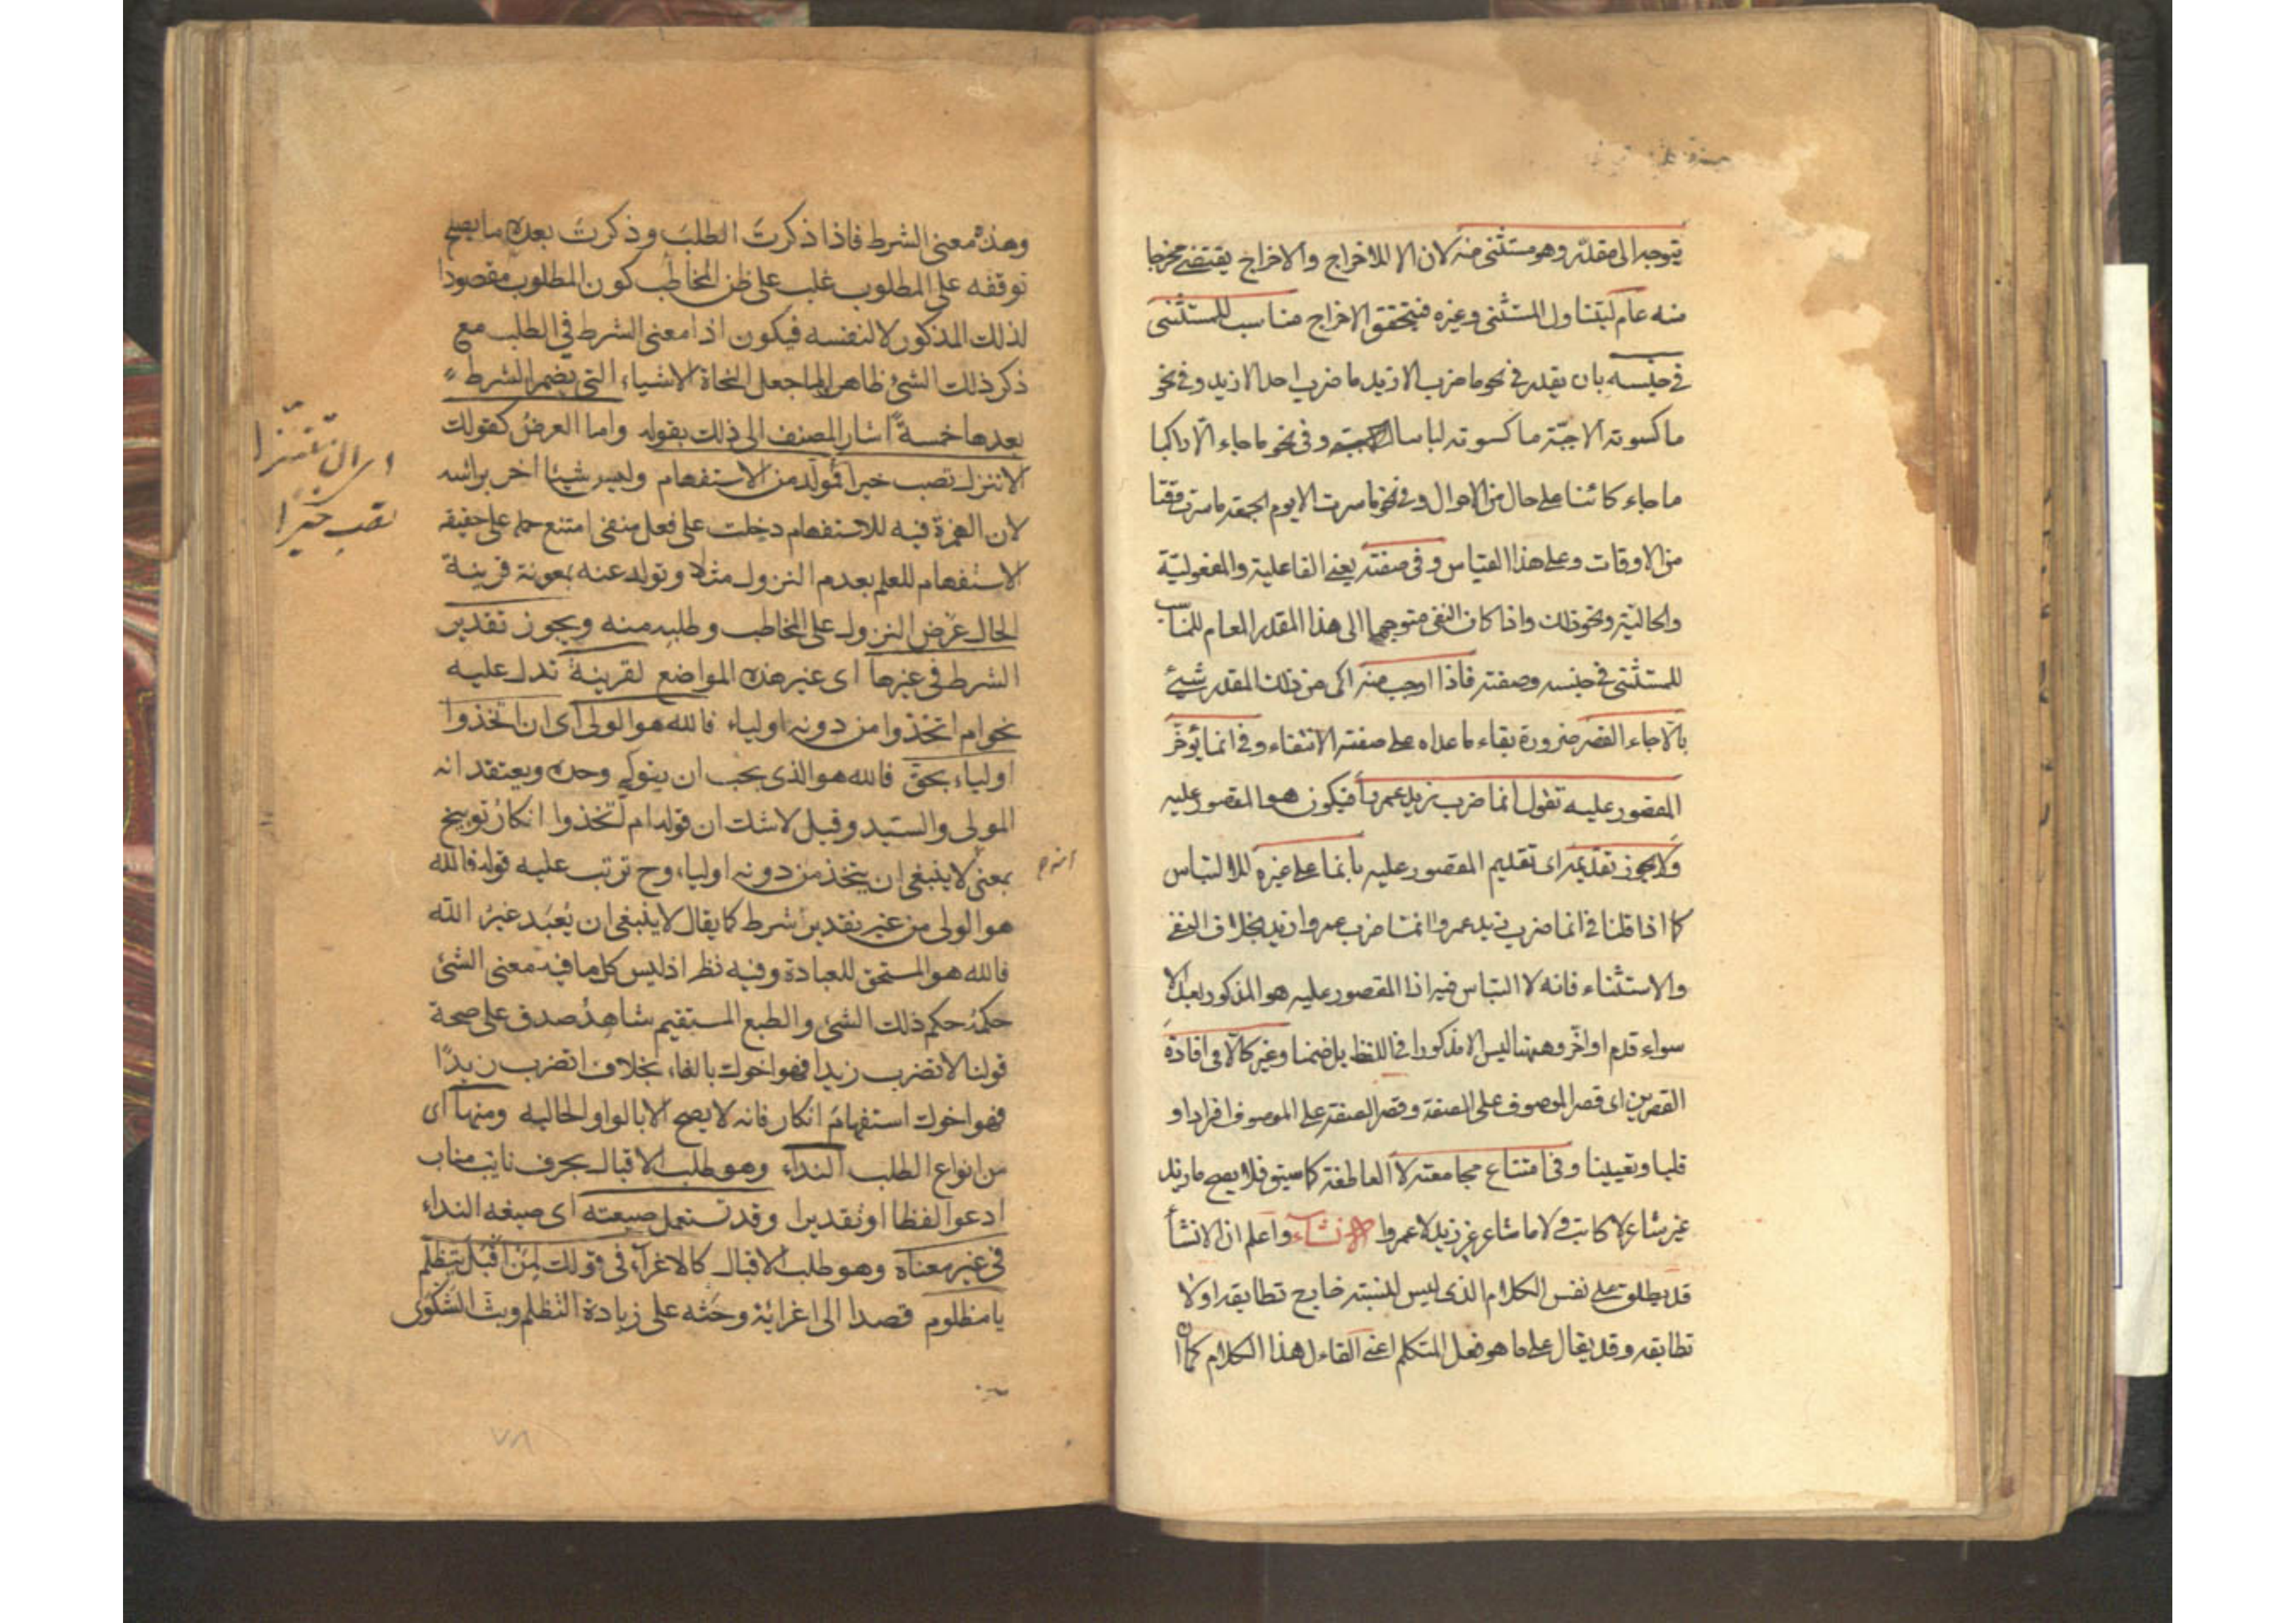 يتوجه الى مقدر وهو مستثنى منه لان الا للاخراج والاخراج يقتضى مخرجا
منه عام ليتناول المستثنى وغيره فيتحقق الاخراج مناسب للمستثنى
فى جنسه بان يقدر فى نحو ما ضرب الا زيد ما ضرب احد الا زيد وفى نحو
ما كسوته الا جبّة ما كسوته لباسا الا جبة وفى نحو ما جاء الّا راكبا
ما جاء كائنا على حال من الاحوال وفى نحو ما سرت الا يوم الجمعة ما سرت وقتا
من الاوقات وعلى هذا القياس وفى صفته يعنى الفاعلية والمفعوليّة
والحاليّة ونحو ذلك واذا كان النفى متوجها الى هذا المقدر العام المناسب
للمستثنى فى جنسه وصفته فاذا اوجب منه اى من ذلك المقدر شيئ
بالّا جاء القصر ضرورة بقاء ما عداه على صفته الانتفاء وفى انما يؤخّر
المقصور عليه تقول انما ضرب زيد عمروا فيكون هو المقصور عليه
ولا يجوز تقديمه اى تقديم المقصور عليه بانما على غيره للالتباس
كما اذا قلنا فى انما ضرب زيد عمروا انما ضرب عمروا زيد بخلاف النفى
والاستثناء فانه لا التباس فيه اذ المقصور عليه هو المذكور بعد الا
سواء قدم او اخّر وههنا ليس الا مذكورا فى اللفظ بل ضمنا وغير كالّا فى افادة
القصرين اى قصر الموصوف على الصفة وقصر الصفة على الموصوف افرادا و
قلبا وتعيينا وفى امتناع مجامعته لا العاطفة كما سبق فلا يصح ما زيد
غير شاعر لا كاتب ولا ما شاعر غير زيد لا عمروا الانشاء واعلم ان الانشأ
قد يطلق على نفس الكلام الذى ليس لنسبته خارج تطابقه او لا
تطابقه وقد يقال على ما هو فعل المتكلم اعنى القاء ل هذا الكلام كما ان
وهذه معنى الشرط فاذا ذكرتَ الطلبَ وذكرتَ بعده ما يصح
توقفه على المطلوب غلب على ظن المخاطب كون المطلوب مقصودا
لذلك المذكور لا لنفسه فيكون اذا معنى الشرط فى الطلب مع
ذكر ذلك الشئ ظاهرا ولما جعل النحاة الاشياء التى يضمر الشرط
بعدها خمسةً اشار المصنف الى ذلك بقوله واما العرضُ كقولك
الا تنزل تصب خيرا فمولد من الاستفهام وليس شيئا اخر براسه
لان الهمزة فيه للاستفهام دخلت على فعل منفى امتنع حمله على حقيقة
الاستفهام للعلم بعدم النزول مثلا وتولد عنه بمعونة قرينة
الحال عَرْض النزول على المخاطب وطلبه منه ويجوز تقدير
الشرط فى غيرها اى غير هذه المواضع لقرينة تدل عليه
نحو ام اتخذوا من دونه اولياء فالله هو الولى اى ان اتخذوا
اولياء بحق فالله هو الذى يجب ان يتولى وحده ويعتقد انه
المولى والسيد وقيل لا شك ان قوله ام اتخذوا انكارُ توبيخ
بمعنى لا ينبغى ان يتخذ من دونه اولياء وح ترتب عليه قوله فالله
هو الولى من غير تقدير شرط كما يقال لا ينبغى ان يُعبَد غيرُ الله
فالله هو المستحق للعبادة وفيه نظر اذ ليس كل ما فيه معنى الشئ
حكمُه حكم ذلك الشئ والطبع المستقيم شاهدُ صدق على صحة
قولنا لا تضرب زيدا فهو اخوك بالفاء بخلاف اتضرب زيدًا
فهو اخوك استفهامَ انكار فانه لا يصح الا بالواو الحالية ومنها اى
من انواع الطلب النداء وهو طلب الاقبال بحرف نايب مناب
ادعوا لفظا او تقديرا وقد تستعمل صيغته اى صيغة النداء
فى غير معناه وهو طلب الاقبال كالاغراء فى قولك لمن اقبل يتظلم
يا مظلوم قصدا الى اغرائه وحثه على زيادة التظلم وبث الشكوى
٧٨